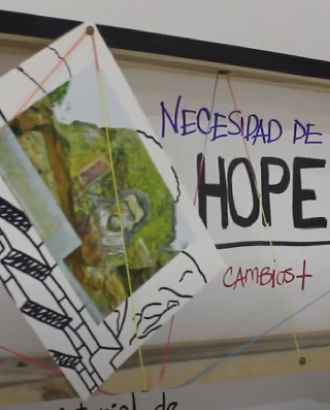 NECESIDAD DE
HOPE
CAMBIOS+
de